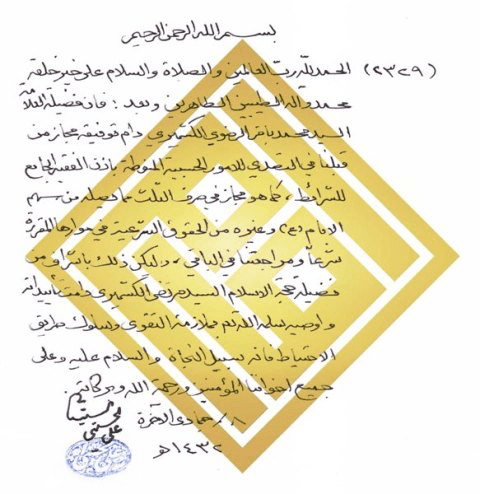 بسم الله الرحمن الرحيم
(٢٣٢٩) الحمد لله رب العالمين والصلاة والسلام على خير خلقه
محمد وآله الطيبين الطاهرين وبعد : فان فضيلة العلامة
السيد محمد باقر الرضوي الكشميري دام توفيقه مجاز من
قبلنا في التصدي للامور الحسبية المنوطة باذن الفقيه الجامع
للشرائط ، كما هو مجاز في صرف الثلث مما يصله من سهم
الامام (ع) وغيره من الحقوق الشرعية في مواردها المقررة
شرعاً ومراجعتنا في الباقي ، وليكن ذلك باشراف من
فضيلة حجة الاسلام السيد مرتضى الكشميري دامت تأييداته
واوصيه سلمه الله تعالى بملازمة التقوى وسلوك طريق
الاحتياط فانه سبيل النجاة والسلام عليه وعلى
جميع اخواننا المؤمنين ورحمة الله وبركاته
٨ / جمادى الآخرة
١٤٣٢ هـ
علي الحسيني السيستاني